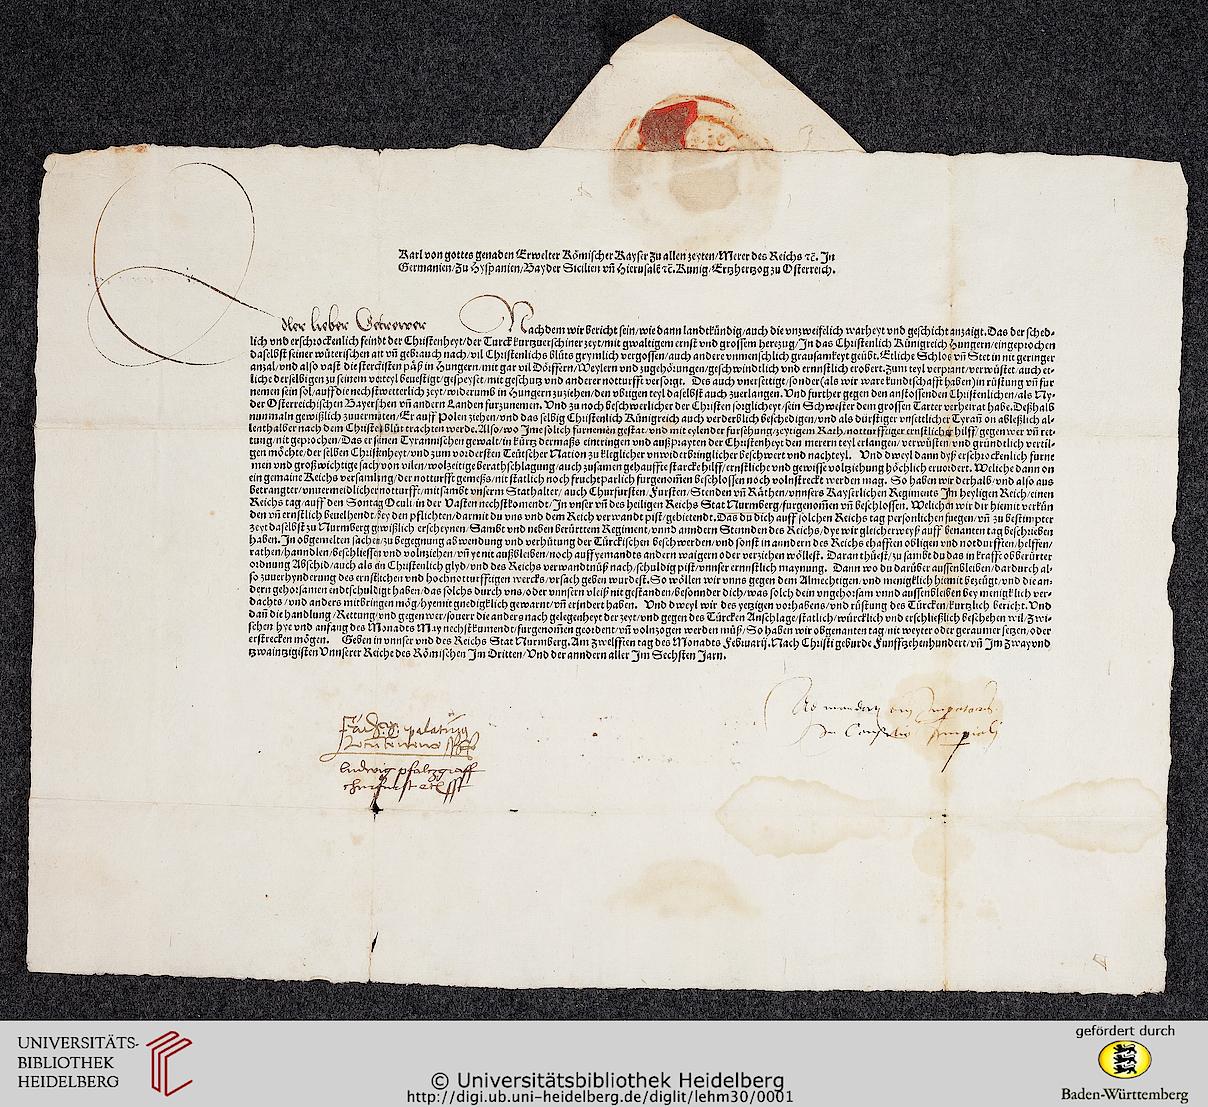 Karl von gottes genaden Erwelter Römischer Kayser zu allen zeyten/Merer des Reichs ꝛc̄. In
Germanien/Zu Hyspanien/Bayder Sicilien vñ Hierusalē ꝛc̄.Kunig/Ertzhertzog zu Osterreich.
dler lieber Getrewer Nachdem wir bericht sein/wie dann landtkündig/auch die vnzweifelich warheyt vnd geschicht anzaigt.Das der sched-
lich vnd erschrockenlich feindt der Christenheyt/der Turck kurtzuerschiner zeyt/mit gwaltigem ernst vnd grossem herezug/In das Christenlich Künigreich Hungern/eingeprochen
daselbst seiner wüterischen art vñ gebrauch nach/vil Christenlichs blüts grymlich vergossen/auch andere vnmenschlich grausamkeyt geübt.Etliche Schlos vñ Stet in nit geringer
anzal/vnd also vast die sterckisten päß in Hungern/mit gar vil Dörffern/Weylern vnd zugehörungen/geschwindtlich vnd ernnstlich erobert.Zum teyl verprant/verwüstet/auch et-
liche derselbigen zu seinem vorteyl beuestigt/gespeyset/mit geschutz vnd anderer notturfft versorgt. Des auch vnersettigt/sonder(als wir ware kundtschafft haben)in rüstung vñ fur
nemen sein sol/auff die nechst wetterlich zeyt/widerumb in Hungern zu ziehen/den vbrigen teyl daselbst auch zuerlangen. Vnd further gegen den anstossenden Christenlichen/als Ny-
der Osterreichischen Bayerschen vñ andern Landen furzunemen. Vnd zu noch beschwerlicher der Christen sorglicheyt/sein Schwester dem grossen Tarter verheirat habe.Deßhalb
nunmaln gewißlich zuuermüten/Er auff Polen ziehen/vnd das selbig Christenlich Künigreich auch verderblich beschedigen/vnd als dürstiger vnsettlicher Tyrañ on ableßlich al-
lenthalber nach dem Christē blüt trachten werde.Also/wo Jme solich furnemen gestat/vnd mit eylender fursehung/zeytigem Rath/notturfftiger ernstlicher hilff/gegenwer vñ ret-
tung/nit geprochen/Das er seinen Tyrannischen gewalt/in kürtz dermaßs eintringen vnd außprayten/der Christenheyt den merern teyl erlangen/verwüsten vnd gründtlich vertil-
gen möchte/der selben Christenheyt/vnd zum vordersten Teütscher Nation zu kleglicher vnwiderbringlicher beschwert vnd nachteyl. Vnd dweyl dann dyß erschrockenlich furne
men vnd großwichtige sach von vilen/wolzeitige berathschlagung/auch zusamen gehauffte starcke hilff/ernstliche vnd gewisse voltziehung höchlich eruordert. Weliche dann on
ein gemaine Reichs versamlung/der notturfft gemeßs/nit statlich noch fruchtparlich furgenomēn beschlossen noch volnstreckt werden mag. So haben wir derhalb/vnd also aus
betrangter/vnuermeidlicher notturfft/mitsambt vnserm Stathalter/auch Churfursten/Fursten/Stenden vñ Räthen/vnnsers Kayserlichen Regiments Jm heyligen Reich/einen
Reichs tag/auff den Sontag Oculi/in der Vasten nechstkomendt/Jn vnser vñ des heiligen Reichs Stat Nurmberg/furgenomēn vñ beschlossen. Welichen wir dir hiemit verkün
den vñ ernstlich beuelhendt/bey den pflichten/darmit du vns vnd dem Reich verwandt pist/gebietendt.Das du dich auff solchen Reichs tag personlichen fuegen/vñ zu bestimpter
zeyt daselbst zu Nurmberg gwißlich erscheynen/Sambt vnd neben berürttem Regiment/vnnd anndern Stennden des Reichs/dye wir gleicherweyß auff benanten tag beschrieben
haben.In obgemelten sachen/zu begegnung abwendung vnd verhütung der Türckischen beschwerden/vnd sonst in anndern des Reichs chafften obligen vnd notdurfften/helffen/
rathen/hanndlen/beschliessen vnd volnziehen/vñ ye nit außbleiben/noch auff yemandts andern waigern oder verziehen wöllest. Daran thüest/zu sambt du das in krafft obberürter
ordnung Abschid/auch als ein Christenlich glyd/vnd des Reichs verwandt nüß nach/schuldig pist/vnnser ernnstlich maynung. Dann wo du darüber aussenbleiben/dardurch al-
so zuuerhynderung des ernstlichen vnd hochnotturfftigen wercks/vrsach geben wurdest.So wöllen wir vnns gegen dem Almechtigen/vnd menigklich hiemit bezeügt/vnd die an-
dern gehorsamen endtschuldigt haben/das solchs durch vns/oder vnnsern vleiß nit gestanden/besonnder dich/was solch dein vngehorsam vnnd aussenbleiben bey menigklich ver-
dachts/vnd anders mitbringen mög/hyemit gnedigklich gewarnt/vñ erindert haben. Vnd dweyl wir des yetzigen vorhabens/vnd rüstung des Türcken/kurtzlich bericht.Vnd
dañ die handlung/Rettung/vnd gegenwer/souerr die anders nach gelegenheyt der zeyt/vnd gegen des Türcken Anschlage/statlich/würcklich vnd erschließlich beschehen wil/Zwi-
schen hye vnd anfang des Monadts May nechstkumendt/furgenomēn geordent/vñ volnzogen werden müß/So haben wir obgenanten tag/nit weyter oder geraumer setzen/oder
erstrecken mögen. Geben in vnnser vnd des Reichs Stat Nurmberg.Am zwelfften tag des Monadts Februarij.Nach Christi geburde Funfftzehenhundert/vñ Jm zwayvnd
tzwaintzigisten Vnnserer Reiche des Römischen Jm Dritten/Vnd der anndern aller Jm Sechsten Jarn.
ludwig pfaltzgraff
churfurst
UNIVERSITÄTS-
BIBLIOTHEK
HEIDELBERG
© Universitätsbibliothek Heidelberg
http://digi.ub.uni-heidelberg.de/diglit/lehm30/0001
gefördert durch
Baden-Württemberg